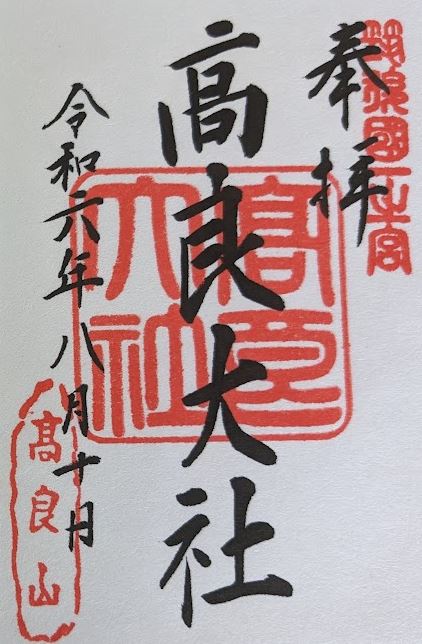 奉拝
筑後國一之宮
髙良大社
髙良大社
令和六年八月十日
髙良山